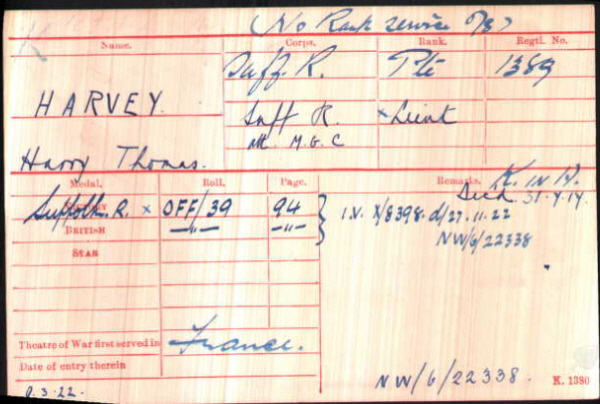 (No Rank service 
Name. Corps. Rank. Regtl. No.
Suff. R. Pte 1389
HARVEY. Suff R. × Lieut
att. M.G.C
Harry Thomas.
Medal. Roll. Page. Remarks. K. in A.
Died 31.7.17.
Suffolk. R. × OFF/39 94 } I.V. X/8398. d/27.11.22
BRITISH —"— —"— NW/6/22338
STAR
Theatre of War first served in France.
Date of entry therein
NW/6/22338. K. 1380
3.22.